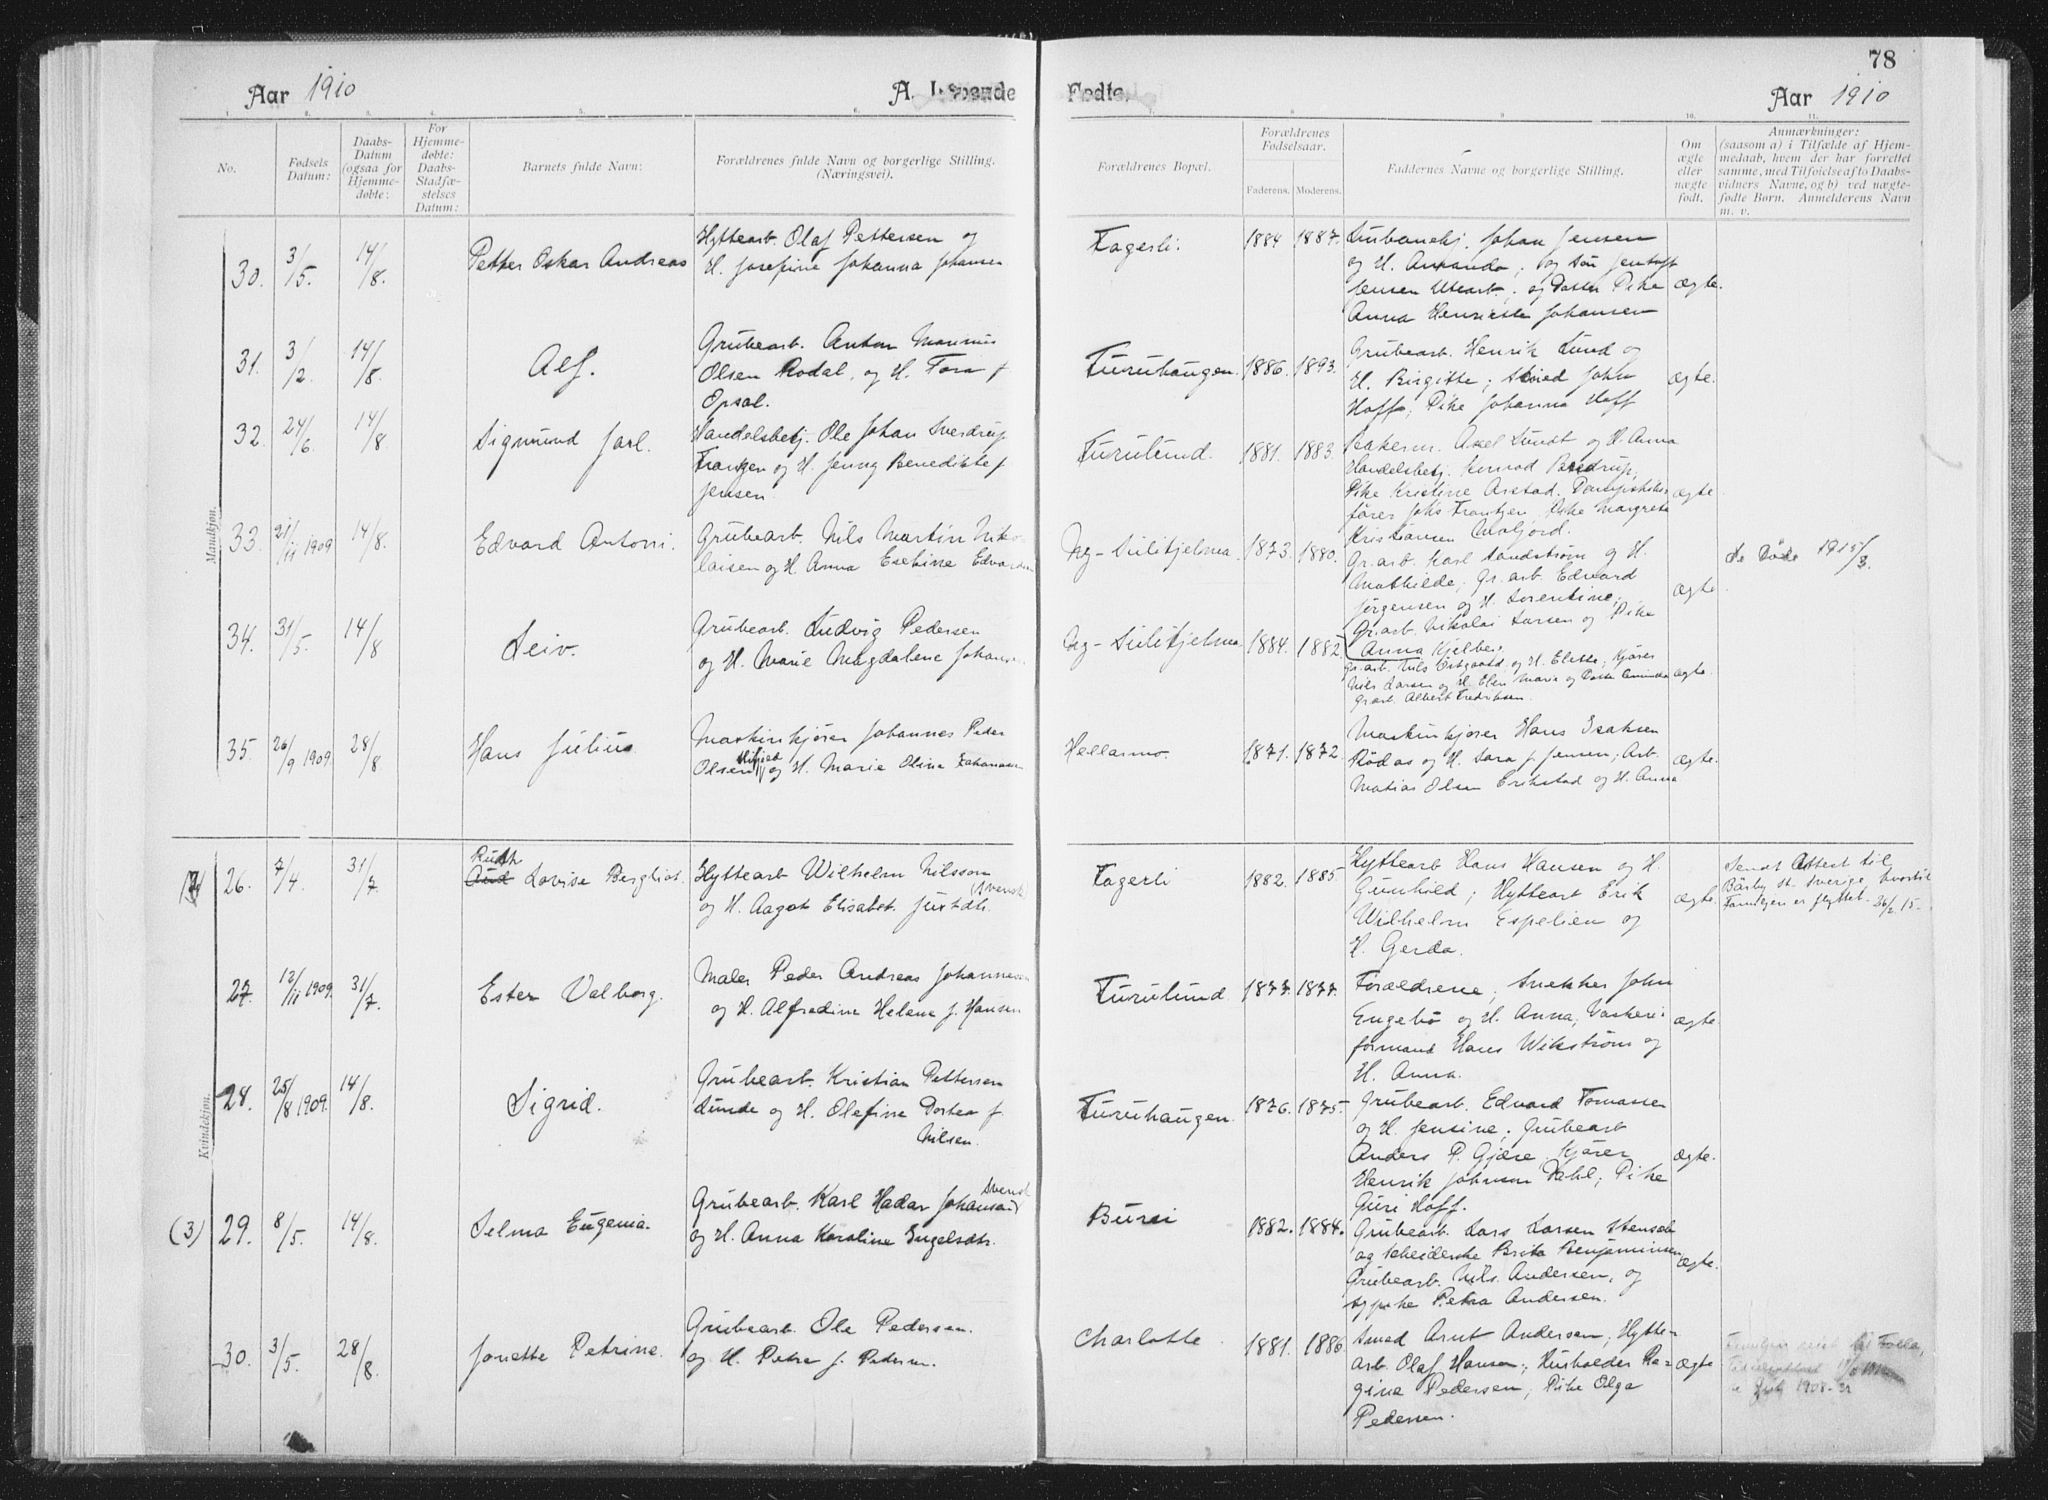 78
Aar 1910
A. Levende
Fødte.
Aar 1910
1. 2. 3. 4. 5. 6. 7. 8. 9. 10. 11.
No.
Fødsels
Datum:
Daabs-
Datum
(ogsaa for
Hjemme-
døbte:
For
Hjemme-
døbte:
Daabs-
Stadfæ-
stelses
Datum:
Barnets fulde Navn:
Forældrenes fulde Navn og borgerlige Stilling.
(Næringsvei).
Forældrenes Bopæl.
Forældrenes
Fødselsaar.
Faderens. Moderens.
Faddernes Navne og borgerlige Stilling.
Om
ægte
eller
uægte
født.
Anmærkninger:
(saasom a) i Tilfælde af Hjem-
medaab, hvem der har forrettet
samme, med Tilføielse af to Daabs-
vidners Navne, og b) ved uægte-
fødte Børn. Anmelderens Navn
m. v.
Mandkjøn.
30. 3/5. 14/8.
Petter Oskar Andreas
Hyttearb. Olaf Pettersen og
H. Josefine Johanna Johansen
Fagerli.
1884 1887.
Johan Jensen
og H. Amanda; og Søn
Jensen; og Datter Pike
Anna Henriette Johansen
ægte.
31. 3/2. 14/8.
Alf.
Grubearb. Anton Marinus
Olsen Rodal, og H. Tora f
Opsal.
Furuhaugen.
1886. 1893.
Grubearb. Henrik Lund og
H. Birgitte; Smed John
Hoff; Pike Johanna Hoff
ægte.
32. 24/6. 14/8.
Sigmund Jarl.
Handelsbetj. Ole Johan Sverdrup
Frantzen og H. Jenny Benedikte f
Jensen.
Furulund.
1881. 1883.
Axel Lundt og H. Anna
Handelsbetj.
Pike Kristine Arstad.
fører Johs Frantzen, Pike Margrete
Kristiansen
ægte
33. 21/11 1909 14/8.
Edvard Antoni.
Grubearb. Nils Martin Niko-
laisen og H. Anna Esekine
Ny-Sulitjelma
1873. 1880.
Gr.arb. Karl Sandstrøm og H.
Mathilde; Gr.arb. Edvard
Jørgensen og H. Sorentine;
Gr.arb. Nikolai Larsen og Pike
Anna Kjelberg.
ægte
Se Døde 1915/3.
34. 31/5. 14/8
Leiv.
Grubearb. Ludvig Pedersen
og H. Marie Magdalene
Ny-Sulitjelma
1884. 1882.
gr.arb. Nils Østgaard og H. Elette; Kjører
Nils Larsen og H. Olea Marie og
gr.arb. Albert Fredriksen.
ægte.
35. 26/9 1909. 28/8
Hans Julius
Maskinkjører Johannes Peder
Olsen og H. Marie Olina
Hellarmo.
1871. 1872.
Maskinkjører Hans Isaksen
Rødaas og H. Sara f. Jensen; Arb.
Matias Olsen Erikstad og H. Anna
ægte.
Kvindekjøn.
26. 7/4. 31/7.
Ruth
Aud Lovise Bergliot.
Hyttearb Wilhelm Nilsson
(svensk)
og H. Aagot Elisabet
Fagerli
1882. 1885.
Hyttearb Hans Hansen og H.
Gunhild; Hyttearb Erik
Wilhelm Espelien og
H. Gerda.
ægte.
Sendt Attest til
Sverige, hvortil
Familjen er flyttet. 26/2 15.
27. 12/11 1909. 31/7.
Ester Valborg.
Maler Peder Andreas Johannessen
og H. Alfredine Helene f. Hansen
Furulund.
1877. 1877.
Forældrene; Snekker John
Engebø og H. Anna; Vaskeri-
formand Hans Wikstrøm og
H. Anna.
ægte.
28. 25/8 1909. 14/8.
Sigrid.
Grubearb. Kristian Pettersen
Lunde og H. Olefine Dortea f
Nilsen.
Furuhaugen.
1876. 1875.
Grubearb. Edvard Tomassen
og H. Jensine; Grubearb
Anders P. Gjære. Kjører
Henrik Johnsen Dahl; Pike
Guri Hoff.
ægte.
(3) 29. 8/5. 14/8.
Selma Eugenia.
Svensk
Grubearb. Karl Hadar Johansand
og H. Anna Karoline Ingelsdtr.
Bursi
1882. 1884.
Grubearb. Lars Larsen
og Arbeiderske Brita Benjaminsen,
Grubearb. Nils Andersen, og
sypike Petra Andersen.
ægte.
30. 3/5. 28/8.
Jonette Petrine.
Grubearb. Ole Pedersen.
og H. Petra f. Pedersen.
Charlotte
1881. 1886.
Smed Arnt Andersen, Hytte-
arb. Olaf Hansen; Husholder Ra-
gina Pedersen; Pike Olga
Pedersen.
ægte